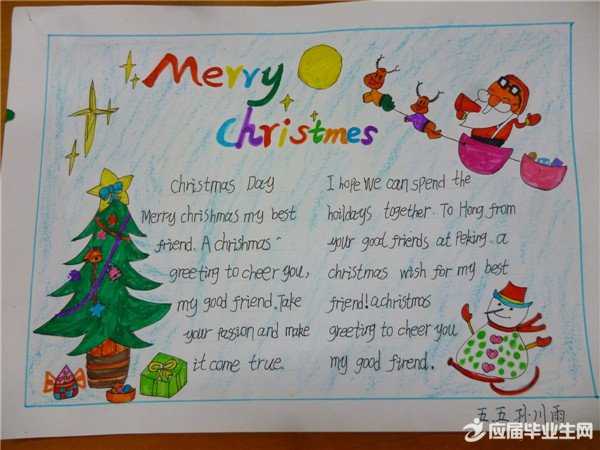 Merry
Christmes
Christmas Day
Merry chrishmas my best
friend. A chrishmas
greeting to cheer you,
my good friend. Take
your passion and make
it come true.
I hope we can spend the
hoildays together. To Hong from
your good friends at Peking. a
christmas wish for my best
friend! a christmas
greeting to cheer you
my good firend.
五五 孙川雨
应届毕业生网